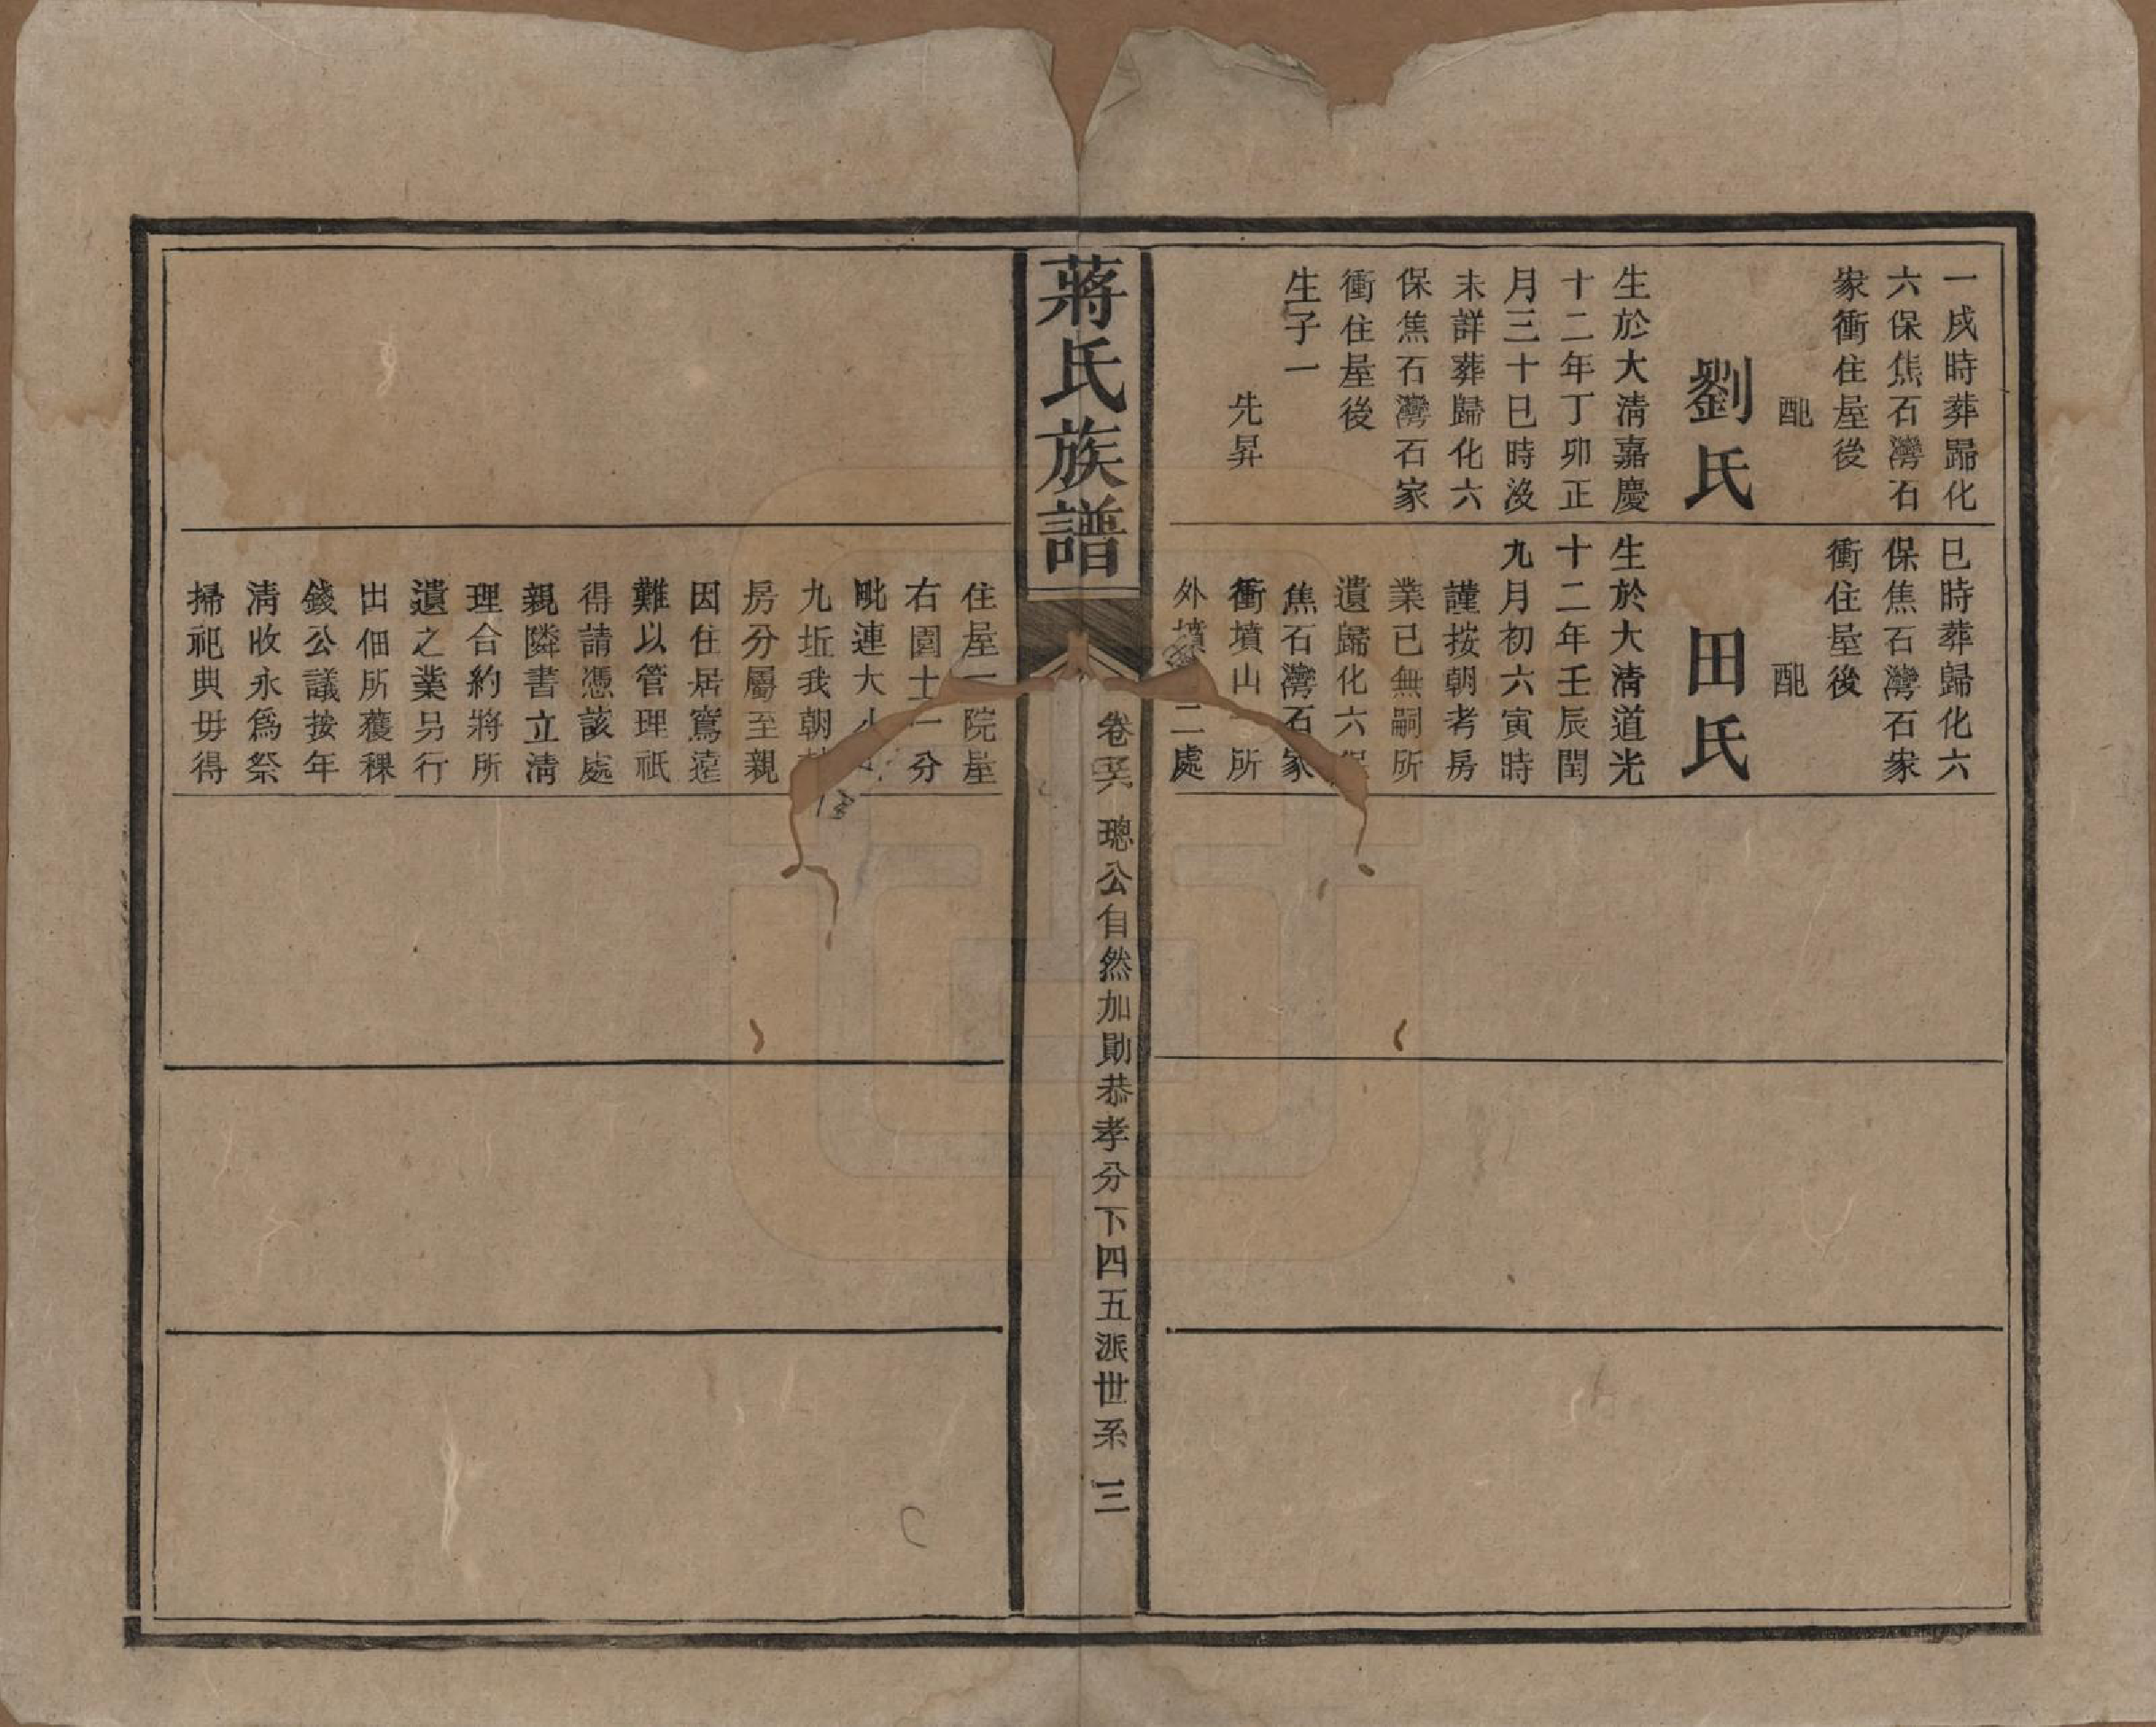 一戌時葬歸化
六保焦石灣石
家衝住屋後
配
劉氏
生於大清嘉慶
十二年丁卯正
月三十巳時沒
未詳葬歸化六
保焦石灣石家
衝住屋後
生子一
先昇
巳時葬歸化六
保焦石灣石家
衝住屋後
配
田氏
生於大清道光
十二年壬辰閏
九月初六寅時
謹按朝考房
業已無嗣所
遺歸化六保
焦石灣石家
衝墳山所
外墳二處
蔣氏族譜
卷
璁公自然加勛恭孝分下四五派世系
三
住屋一院屋
右園土一分
毗連大小
九坵我朝
房分屬至親
因住居寫遠
難以管理祇
得請憑該處
親隣書立清
理合約將所
遺之業另行
出佃所穫稞
錢公議按年
清收永為祭
掃祀典毋得